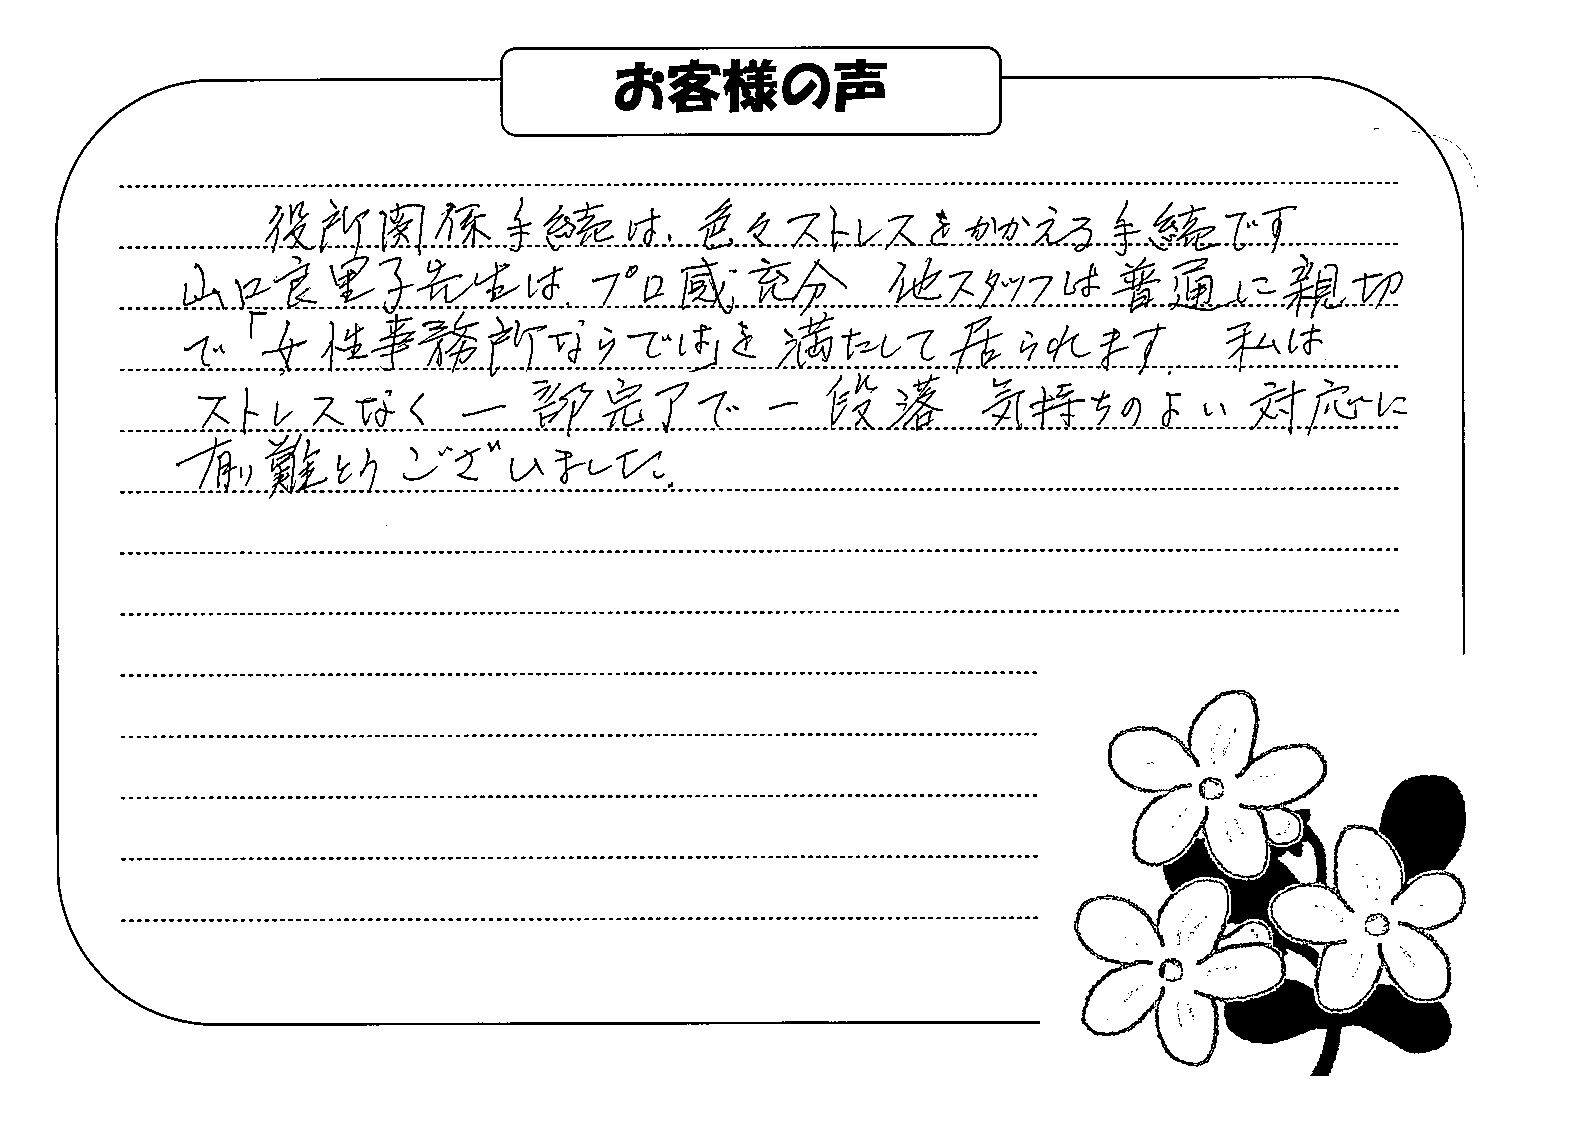 お客様の声
役所関係手続は、色々ストレスをかかえる手続です
山口良里子先生は、プロ感充分 他スタッフは普通に親切
で「女性事務所ならでは」を満たして居られます。私は
ストレスなく一部完了で一段落 気持ちのよい対応に
有り難とうございました。